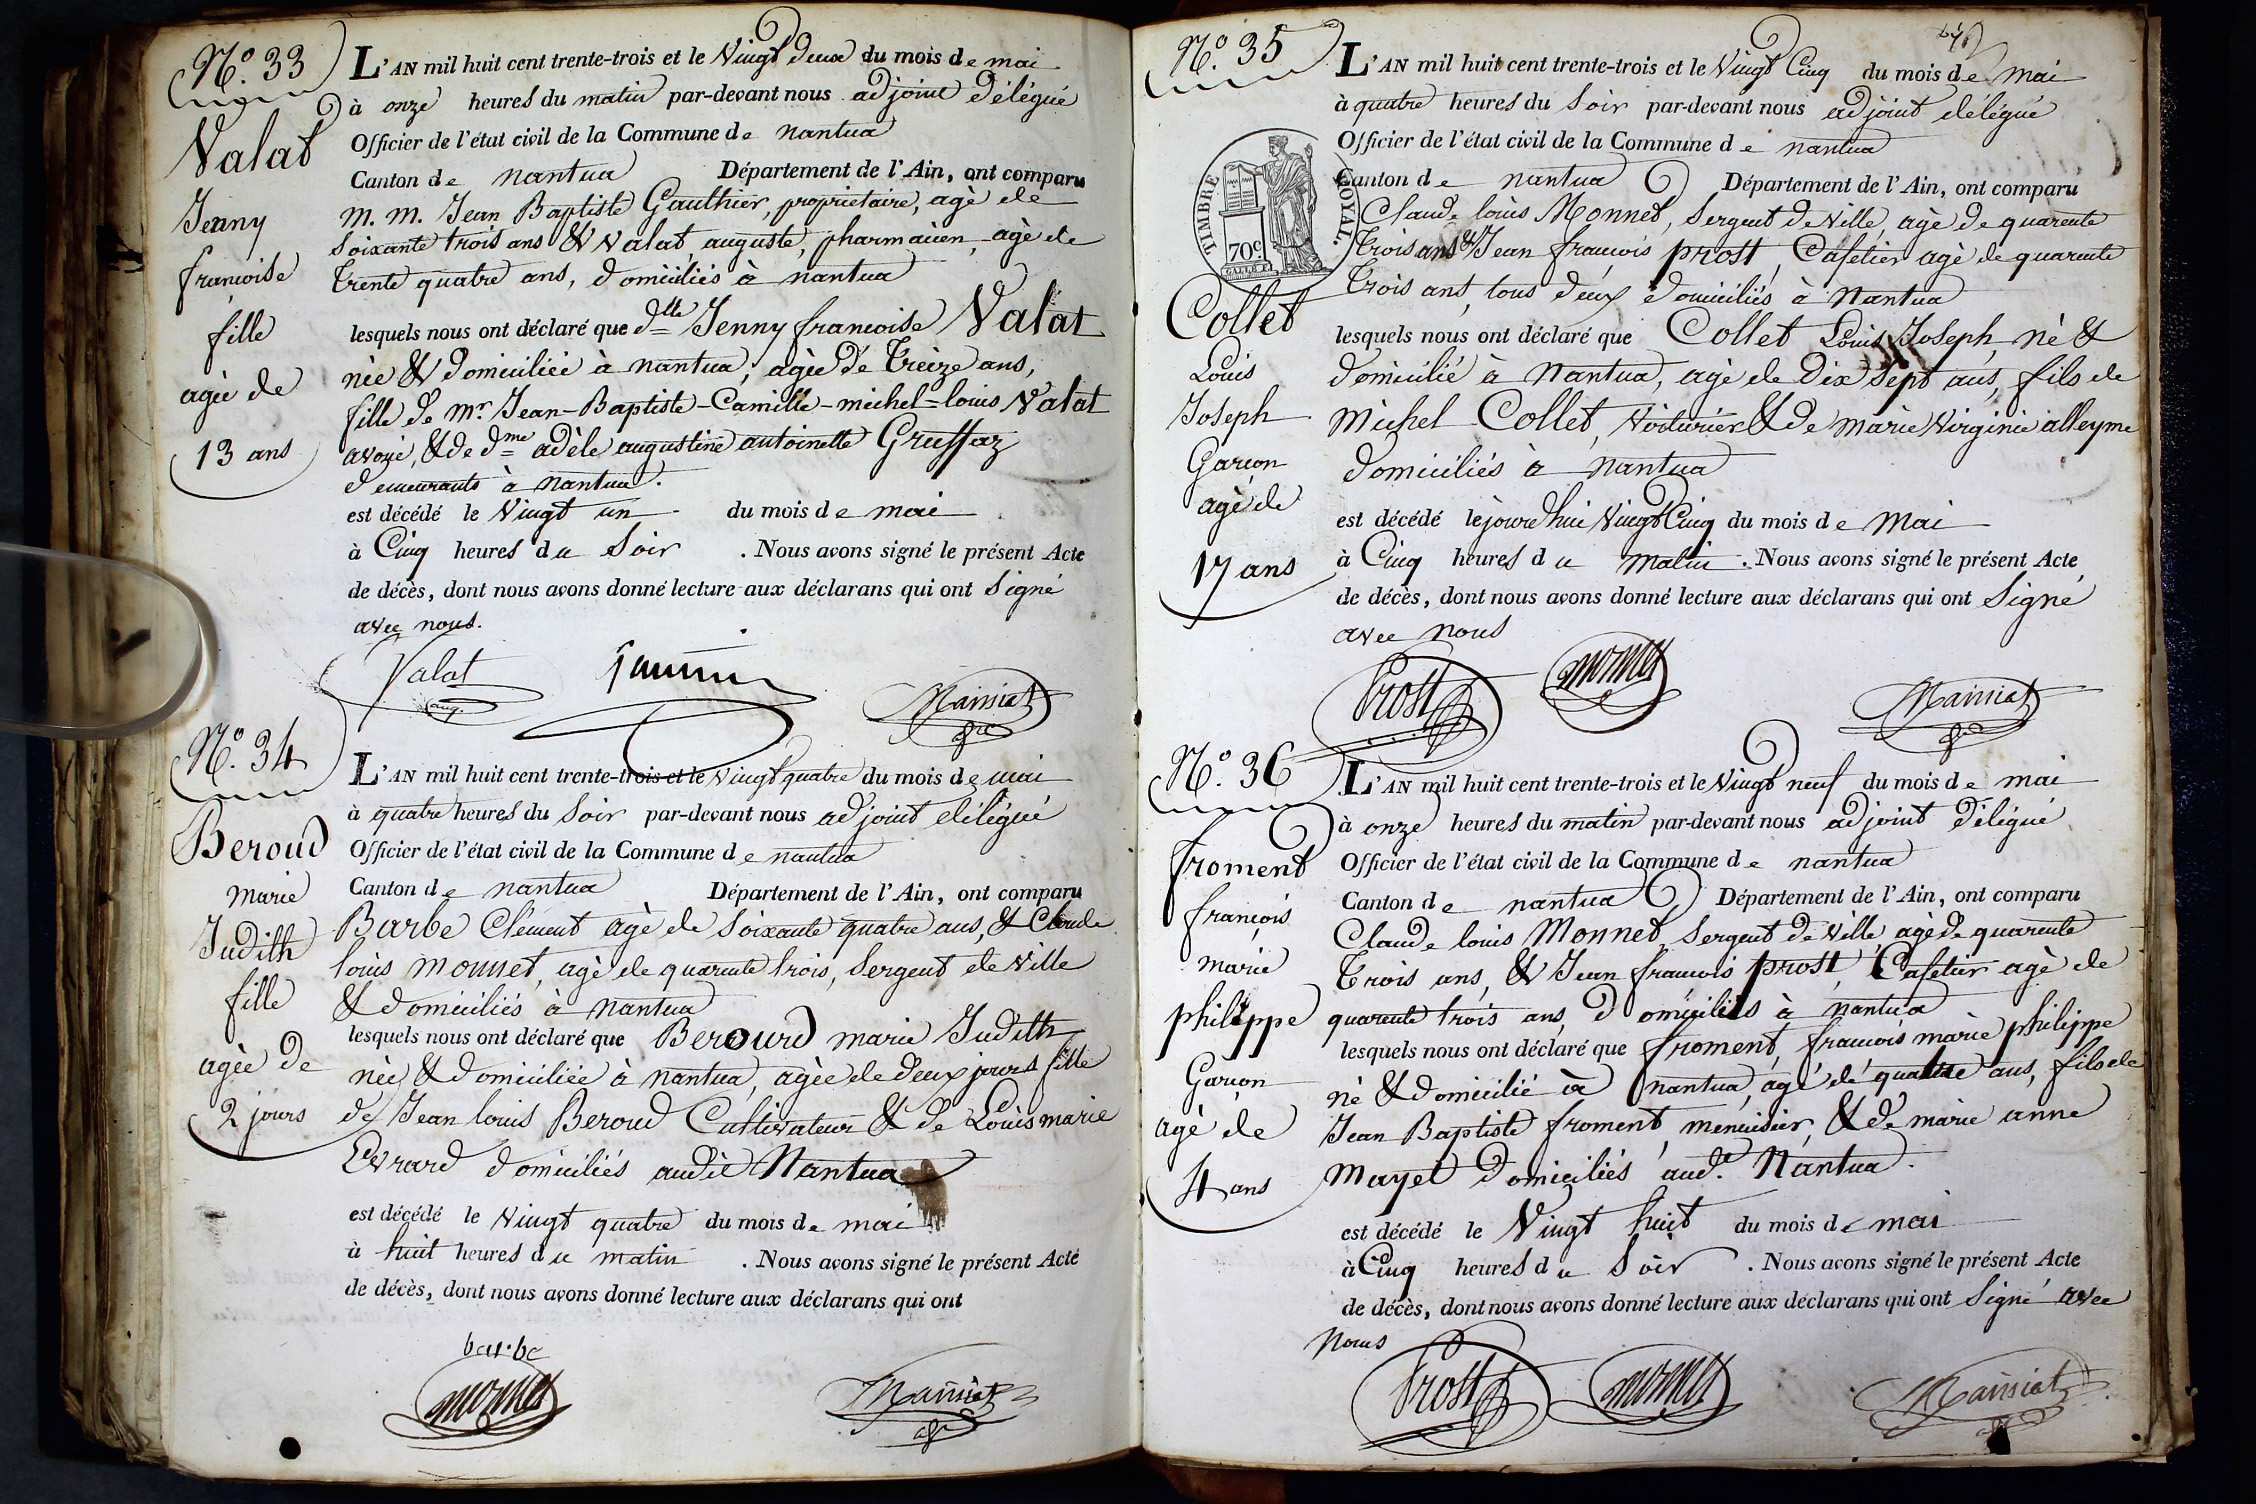 N.º 33
Valat
Jenny
françoise
fille
agée de
13 ans
L'AN mil huit cent trente-trois et le Vingt deux du mois de mai
à onze heures du matin par-devant nous adjoint délégué
Officier de l'état civil de la Commune de nantua
Canton de nantua Département de l'Ain, ont comparu
m. m. Jean Baptiste Gauthier, propriétaire, agé de
soixante trois ans & Valat, auguste, pharmacien, agé de
trente quatre ans, domiciliés à nantua
lesquels nous ont déclaré que dlle Jenny françoise Valat
née & domiciliée à nantua, agée de treize ans,
fille de mr. Jean-Baptiste-Camille-michel-louis Valat
avoué, & de dme adèle augustine antoinette Gruffaz
demeurants à nantua.
est décédé le Vingt un du mois de mai
à Cinq heures du Soir . Nous avons signé le présent Acte
de décès, dont nous avons donné lecture aux déclarans qui ont Signé
avec nous.
Valat
aug.
Mainiat
N.º 34
Beroud
marie
Judith
fille
agée de
2 jours
L'AN mil huit cent trente-trois et le vingt quatre du mois de mai
à quatre heures du Soir par-devant nous adjoint délégué
Officier de l'état civil de la Commune de nantua
Canton de nantua Département de l'Ain, ont comparu
Barbe Clément agé de Soixante quatre ans, & Claude
louis monnet, agé de quarente trois, Sergent de Ville
& domiciliés à nantua
lesquels nous ont déclaré que Berourd marie Judith
née & domiciliée à nantua, agée de deux jours fille
de Jean louis Beroud Cultivateur & de Louis marie
Evrard domiciliés audit Nantua
est décédé le Vingt quatre du mois de mai
à huit heures du matin . Nous avons signé le présent Acte
de décès, dont nous avons donné lecture aux déclarans qui ont
barbe
monnet
Mainiat
N.º 35
TIMBRE ROYAL.
70c
Collet
Louis
Joseph
Garçon
agé de
17 ans
L'AN mil huit cent trente-trois et le Vingt Cinq du mois de mai
à quatre heures du Soir par-devant nous adjoint délégué
Officier de l'état civil de la Commune de nantua
Canton de nantua Département de l'Ain, ont comparu
Claude louis Monnet, Sergent de Ville, agé de quarente
trois ans & Jean françois prost, Cafetier agé de quarente
trois ans, tous deux domiciliés à Nantua
lesquels nous ont déclaré que Collet Louis Joseph, né &
domicilié à Nantua, agé de Dix Sept ans, fils de
michel Collet, Voiturier & de marie Virginie alleyme
domiciliés à nantua
est décédé le jourdhui Vingt Cinq du mois de Mai
à Cinq heures du matin . Nous avons signé le présent Acte
de décès, dont nous avons donné lecture aux déclarans qui ont Signé
avec nous
Prost
monnet
Mainiat
N.º 36
froment
françois
marie
philippe
Garçon
agé de
4 ans
L'AN mil huit cent trente-trois et le Vingt neuf du mois de mai
à onze heures du matin par-devant nous adjoint délégué
Officier de l'état civil de la Commune de nantua
Canton de nantua Département de l'Ain, ont comparu
Claude louis Monnet, Sergent de Ville, agé de quarente
trois ans, & Jean françois prost, Cafetier agé de
quarente trois ans, domiciliés à nantua
lesquels nous ont déclaré que froment, françois marie philippe
né & domicilié à nantua, agé de quatre ans, fils de
Jean Baptiste froment, menuisier, & de marie anne
mayet domiciliés aud.t Nantua.
est décédé le Vingt huit du mois de mai
à Cinq heures du Soir . Nous avons signé le présent Acte
de décès, dont nous avons donné lecture aux déclarans qui ont Signé avec
nous
Prost
monnet
Mainiat